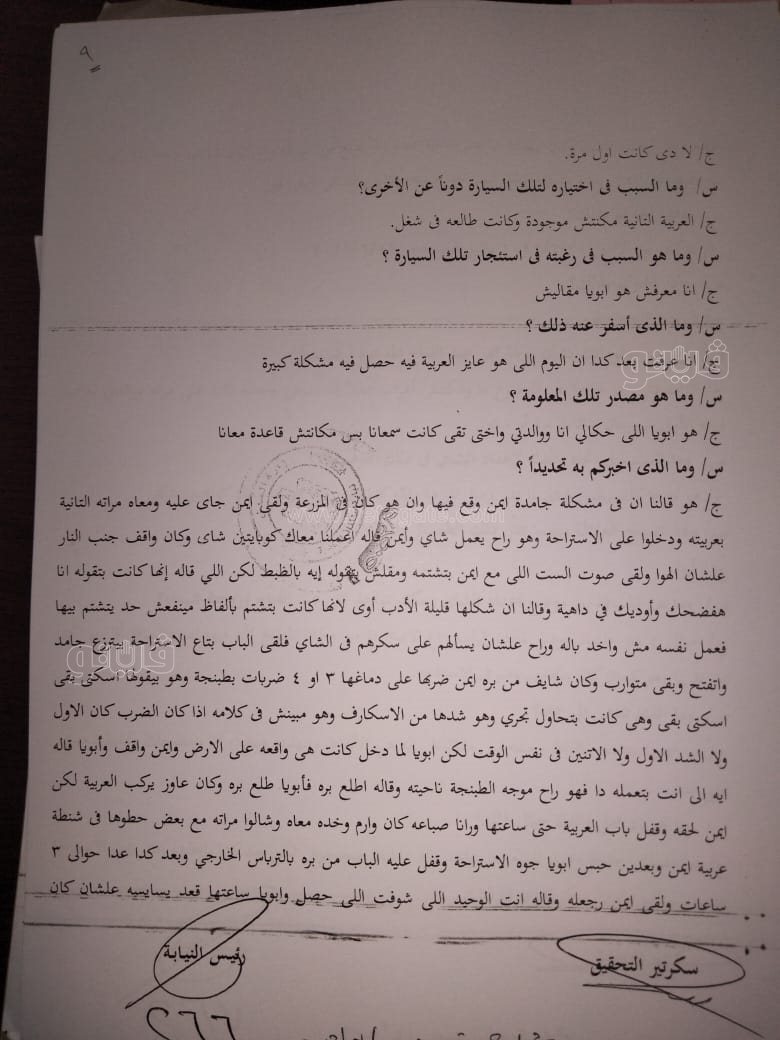 ٩
ج/ لا دى كانت اول مرة.
س/ وما السبب فى اختياره لتلك السيارة دوناً عن الأخرى؟
ج/ العربية التانية مكنتش موجودة وكانت طالعه فى شغل.
س/ وما هو السبب فى رغبته فى استئجار تلك السيارة ؟
ج/ انا معرفش هو ابويا مقاليش
س/ وما الذى أسفر عنه ذلك ؟
ج/ أنا عرفت بعد كدا ان اليوم اللى هو عايز العربية فيه حصل فيه مشكلة كبيرة
فيتو
س/ وما هو مصدر تلك المعلومة ؟
ج/ هو ابويا اللى حكالي انا ووالدتي واختى تقى كانت سمعانا بس مكانتش قاعدة معانا
س/ وما الذى اخبركم به تحديداً ؟
ج/ هو قالنا ان فى مشكلة جامدة ايمن وقع فيها وان هو كان فى المزرعة ولقى ايمن جاى عليه ومعاه مراته التانية
بعربيته ودخلوا على الاستراحة وهو راح يعمل شاي وأيمن قاله اعملنا معاك كوبايتين شاى وكان واقف جنب النار
علشان الهوا ولقى صوت الست اللى مع ايمن بتشتمه ومقلش بتقوله إيه بالظبط لكن اللي قاله إنها كانت بتقوله انا
هفضحك وأوديك في داهية وقالنا ان شكلها قليلة الأدب أوى لانها كانت بتشتم بألفاظ مينفعش حد يتشتم بيها
فعمل نفسه مش واخد باله وراح علشان يسألهم على سكرهم فى الشاي فلقى الباب بتاع الاستراحة بيترزع جامد
فيتو
واتفتح وبقى متوارب وكان شايف من بره ايمن ضربها على دماغها ٣ او ٤ ضربات بطبنجة وهو بيقولها اسكتى بقى
اسكتى بقى وهى كانت بتحاول تجري وهو شدها من الاسكارف وهو مبينش فى كلامه اذا كان الضرب كان الاول
ولا الشد الاول ولا الاتنين فى نفس الوقت لكن ابويا لما دخل كانت هى واقعه على الارض وايمن واقف وأبويا قاله
ايه الى انت بتعمله دا فهو راح موجه الطبنجة ناحيته وقاله اطلع بره فأبويا طلع بره وكان عاوز يركب العربية لكن
ايمن لحقه وقفل باب العربية حتى ساعتها ورانا صباعه كان وارم وخده معاه وشالوا مراته مع بعض حطوها فى شنطة
عربية ايمن وبعدين حبس ابويا جوه الاستراحة وقفل عليه الباب من بره بالترباس الخارجي وبعد كدا عدا حوالى ٣
ساعات ولقى ايمن رجعله وقاله انت الوحيد اللى شوفت اللى حصل وابويا ساعتها قعد يسايسيه علشان كان
سكرتير التحقيق
رئيس النيابة
٢٦٦